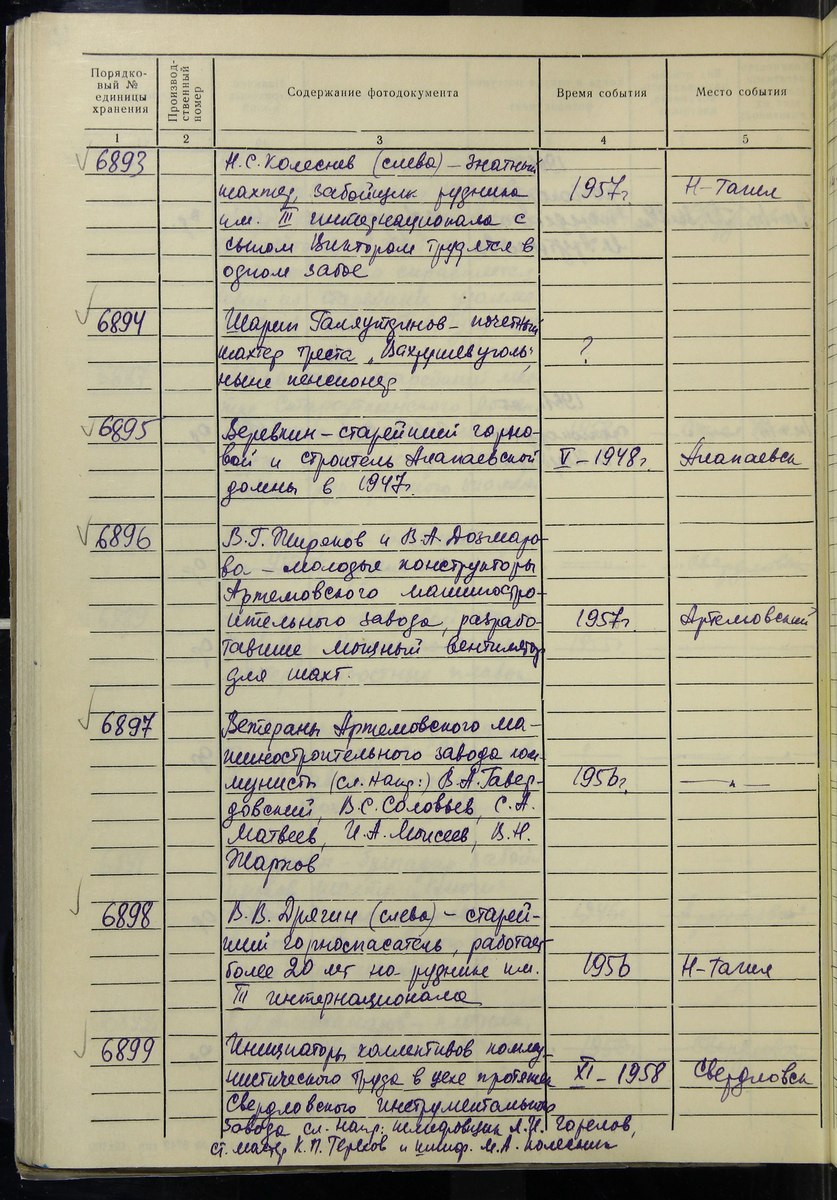 Порядко-
вый №
единицы
хранения
Производ-
ственный
номер
Содержание фотодокумента
Время события
Место события
1 2 3 4 5
6893 Н.С. Колеснев (слева) – знатный
шахтер, забойщик рудника 1957г. Н-Тагил
им. III интернационала с
сыном Виктором трудятся в
одном забое
6894 Шарип Галяутдинов – почетный
шахтер треста „Вахрушевуголь", ?
ныне пенсионер
6895 Веревкин – старейший горно-
вой и строитель Алапаевской V – 1948г. Алапаевск
домны в 1947г.
6896 В.Г. Ширяков и В.А. Дозмаро-
ва – молодые конструкторы
Артемовского машиностро-
ительного завода, разрабо- 1957г. Артемовский
тавшие мощный вентилятор
для шахт.
6897 Ветераны Артемовского ма-
шиностроительного завода ком-
мунисты (сл. напр.:) В.А. Гавер- 1956г. —"—
довский, В.С. Соловьев, С.А.
Матвеев, И.А. Моисеев, В.Н.
Жарков
6898 В.В. Дрягин (слева) – старей-
ший горноспасатель, работает
более 20 лет на руднике им. 1956 Н-Тагил
III интернационала
6899 Инициаторы коллективов комму-
нистического труда в цехе протяжек XI – 1958 Свердловск
Свердловского инструментального
завода сл. напр: шлифовщик Л.И. Горелов,
ст. мастер К.П. Терехов и шлиф. М.А. Колесник